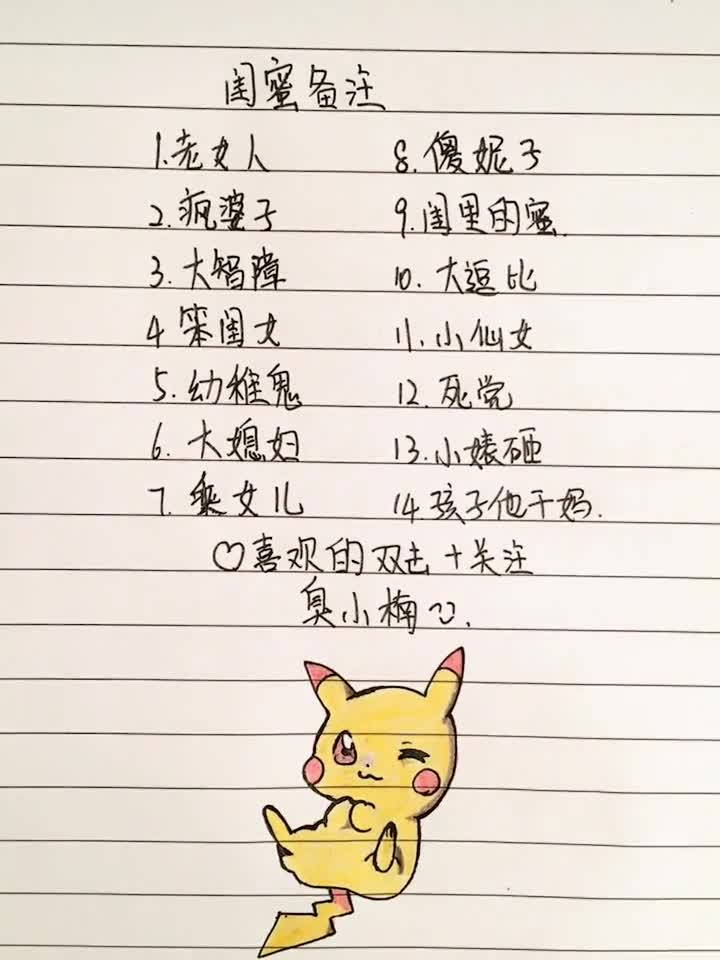 闺蜜备注
1.老女人
2.疯婆子
3.大智障
4笨闺女
5.幼稚鬼
6.大媳妇
7.乖女儿
8.傻妮子
9.闺里的蜜.
10.大逗比
11.小仙女
12.死党
13.小婊砸
14.孩子他干妈.
♡喜欢的双击+关注
臭小楠